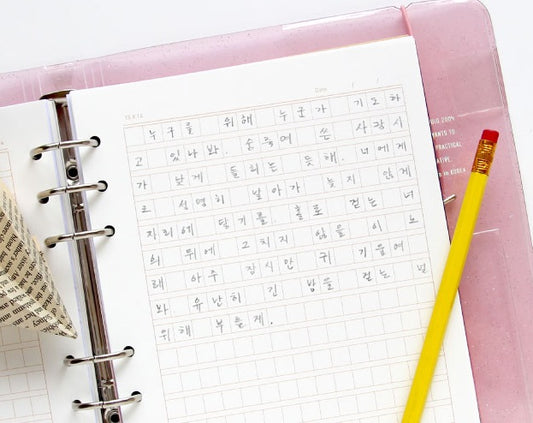 Date / /
누구를 위해 누군가 기도하
고 있나봐. 숨죽여 쓴 사랑시
가 낮게 들리는 듯해. 너에게
로 선명히 날아가 늦지 않게
자리에 닿기를. 홀로 걷는 너
의 뒤에 그치지 않을 이 노
래 아주 잠시만 귀 기울여
봐 유난히 긴 밤을 걷는 널
위해 부를게.
2004
ANTS TO
PRACTICAL
ATIVE.
IN KOREA